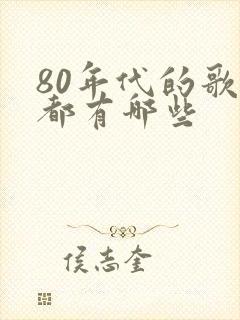 80年代的歌
都有哪些
侯志奎